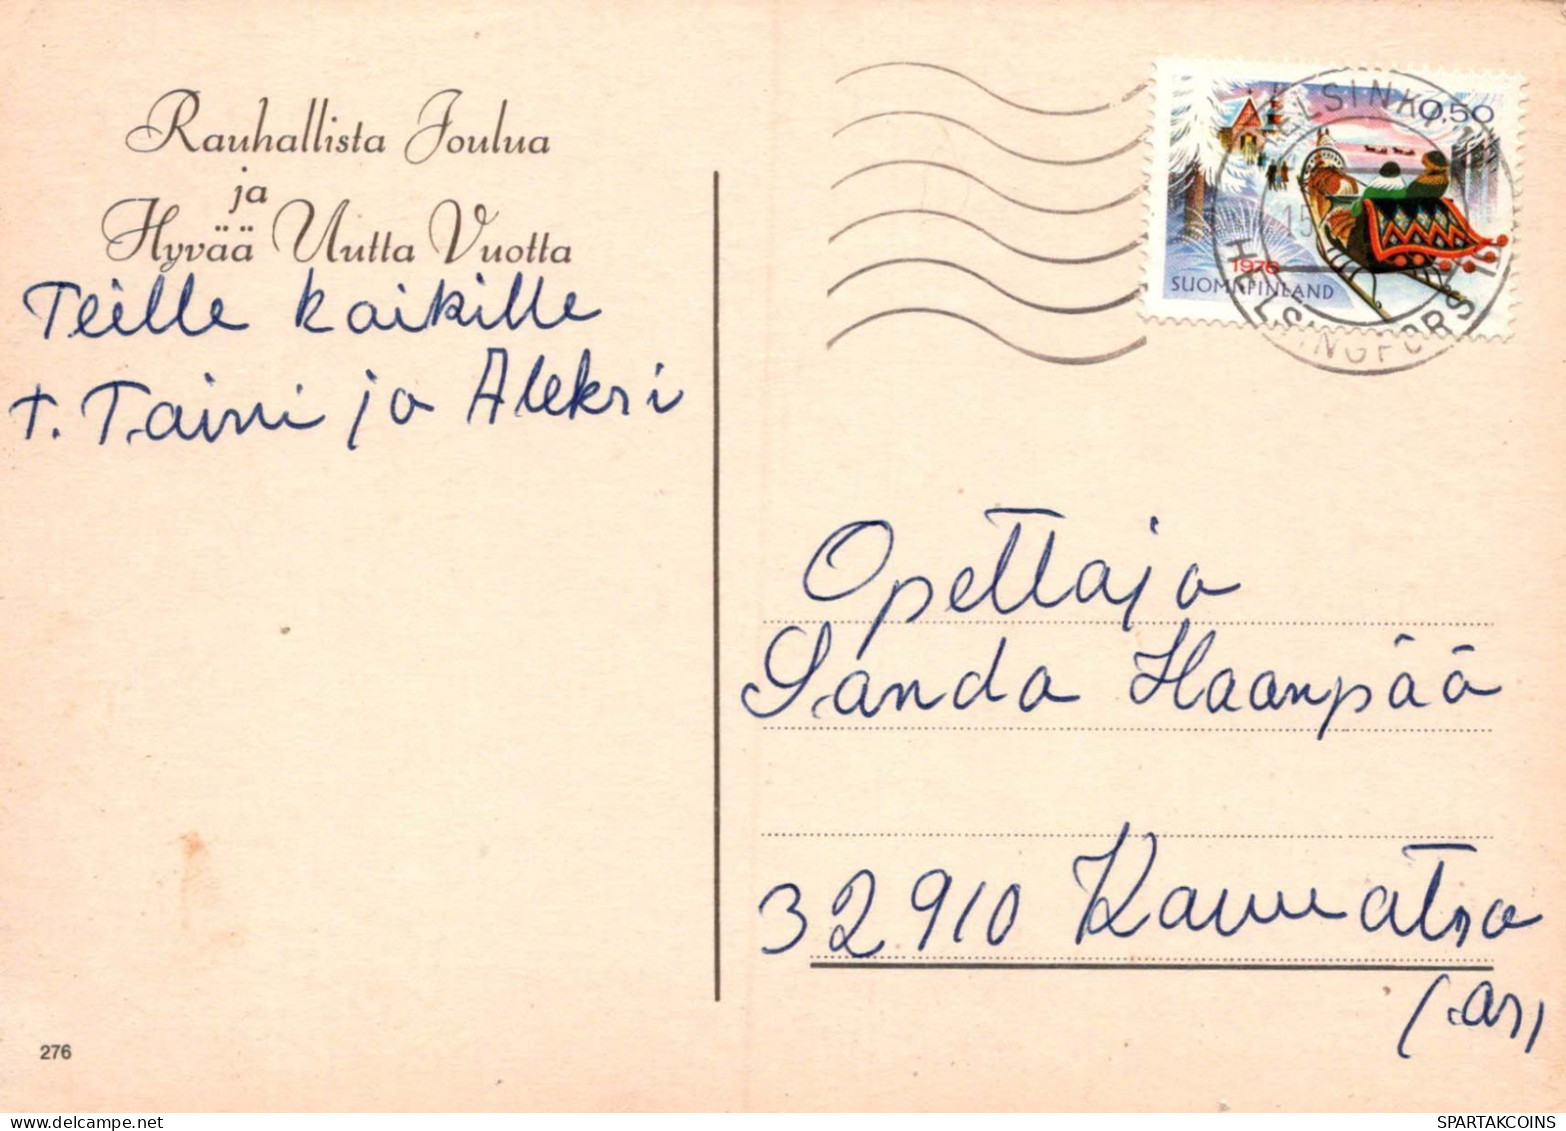 Rauhallista Joulua
ja
Hyvää Uutta Vuotta
Teille kaikille
T. Taini ja Aleksi
HELSINKI
HELSINGFORS
15
0,50
1976
SUOMI FINLAND
Opettaja
Sanda Haanpää
32910 Kauvatsa
276
SPARTAKCOINS.COM